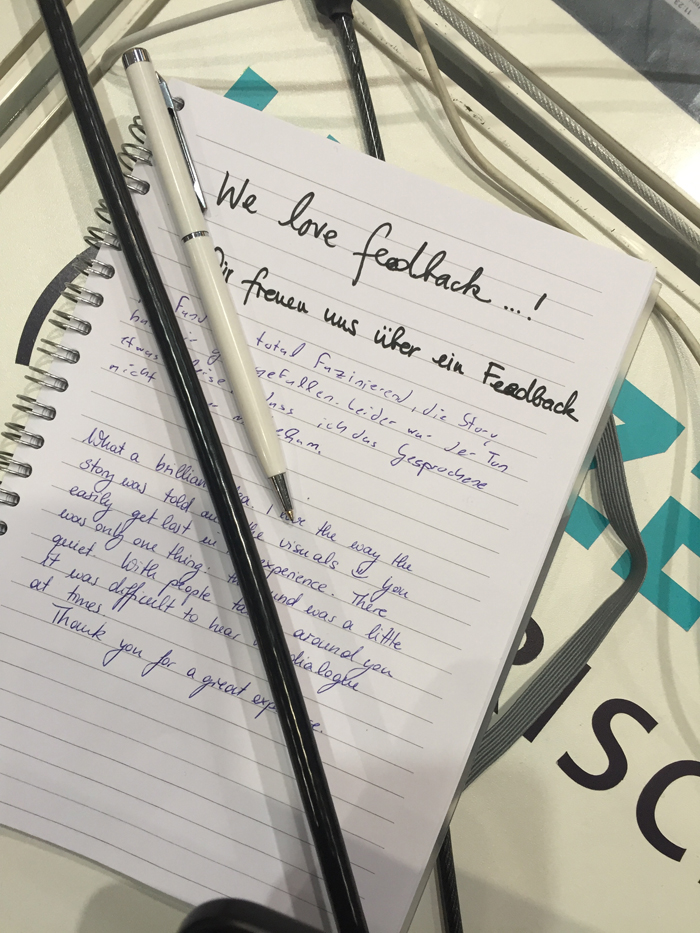 We love feedback....!
Wir freuen uns über ein Feedback
Fand total Faszinierend, die Story
hat gefallen. Leider war der Ton
etwas leise, dass ich das Gesprochene
nicht
What a brilliant idea. I love the way the
story was told and the visuals & you
easily get lost in experience. There
was only one thing: the sound was a little
quiet. With people talking around you
it was difficult to hear dialogue
at times
Thank you for a great experience.
ISC